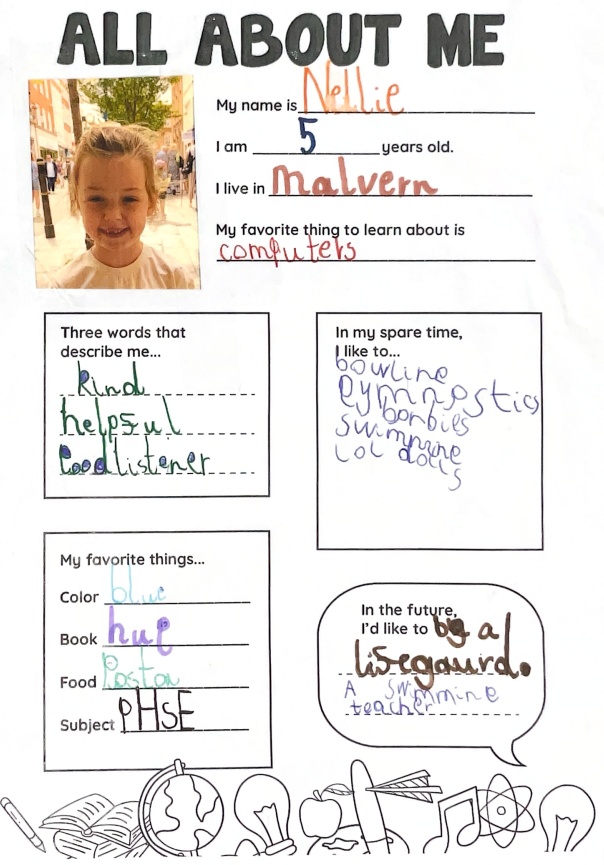 ALL ABOUT ME
My name is Nellie
I am 5 years old.
I live in malvern
My favorite thing to learn about is
computers
Three words that
describe me...
kind
helpful
good listener
In my spare time,
I like to...
bowline
gymnostics
borbies
swimmine
LOL dolls
My favorite things...
Color blue
Book hug
Food Pastou
Subject PHSE
In the future,
I'd like to be a
lifegaurd.
A swimmine
teacher